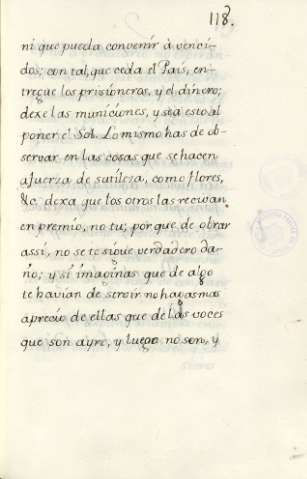 118.
ni que pueda convenir à venci-
dos; con tal, que ceda el País, en-
tregue los prisioneros, y el dinero;
dexe las municiones, y sea esto al
poner el Sol. Lo mismo has de ob-
servar, en las cosas que se hacen
a fuerza de sutileza, como flores,
&c. dexa que los otros las reciban
en premio, no tu; porque de obrar
assi, no se te sigue verdadero da-
ño; y si imaginas que de algo
te havian de servir no hagas mas
aprecio de ellas que de las voces
que son ayre, y luego no son, y